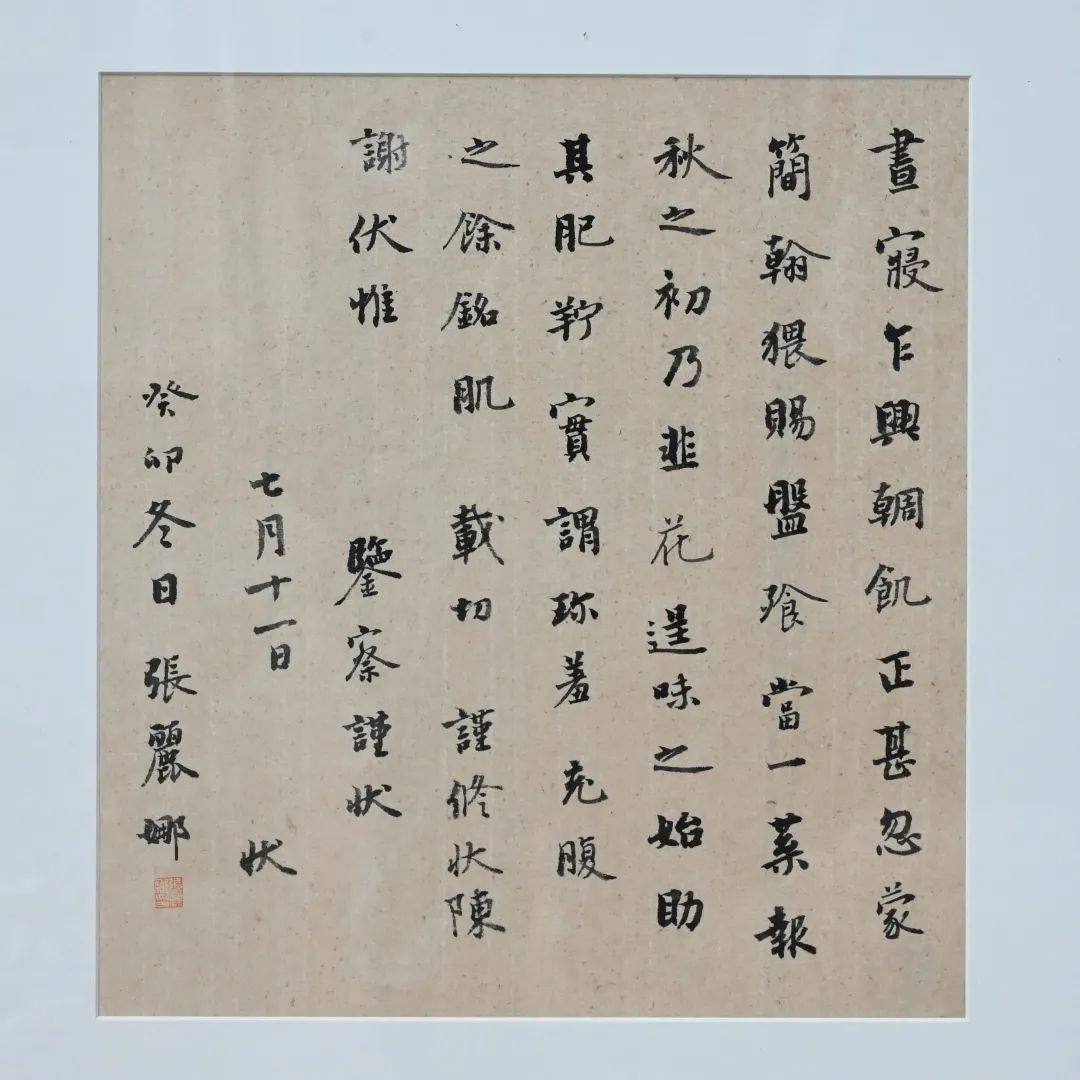 晝寢乍興輖飢正甚忽蒙
簡翰猥賜盤飧當一葉報
秋之初乃韭花逞味之始助
其肥羜實謂珍羞充腹
之餘銘肌載切謹修狀陳
謝伏惟鑒察謹狀
七月十一日狀
癸卯冬日張麗娜